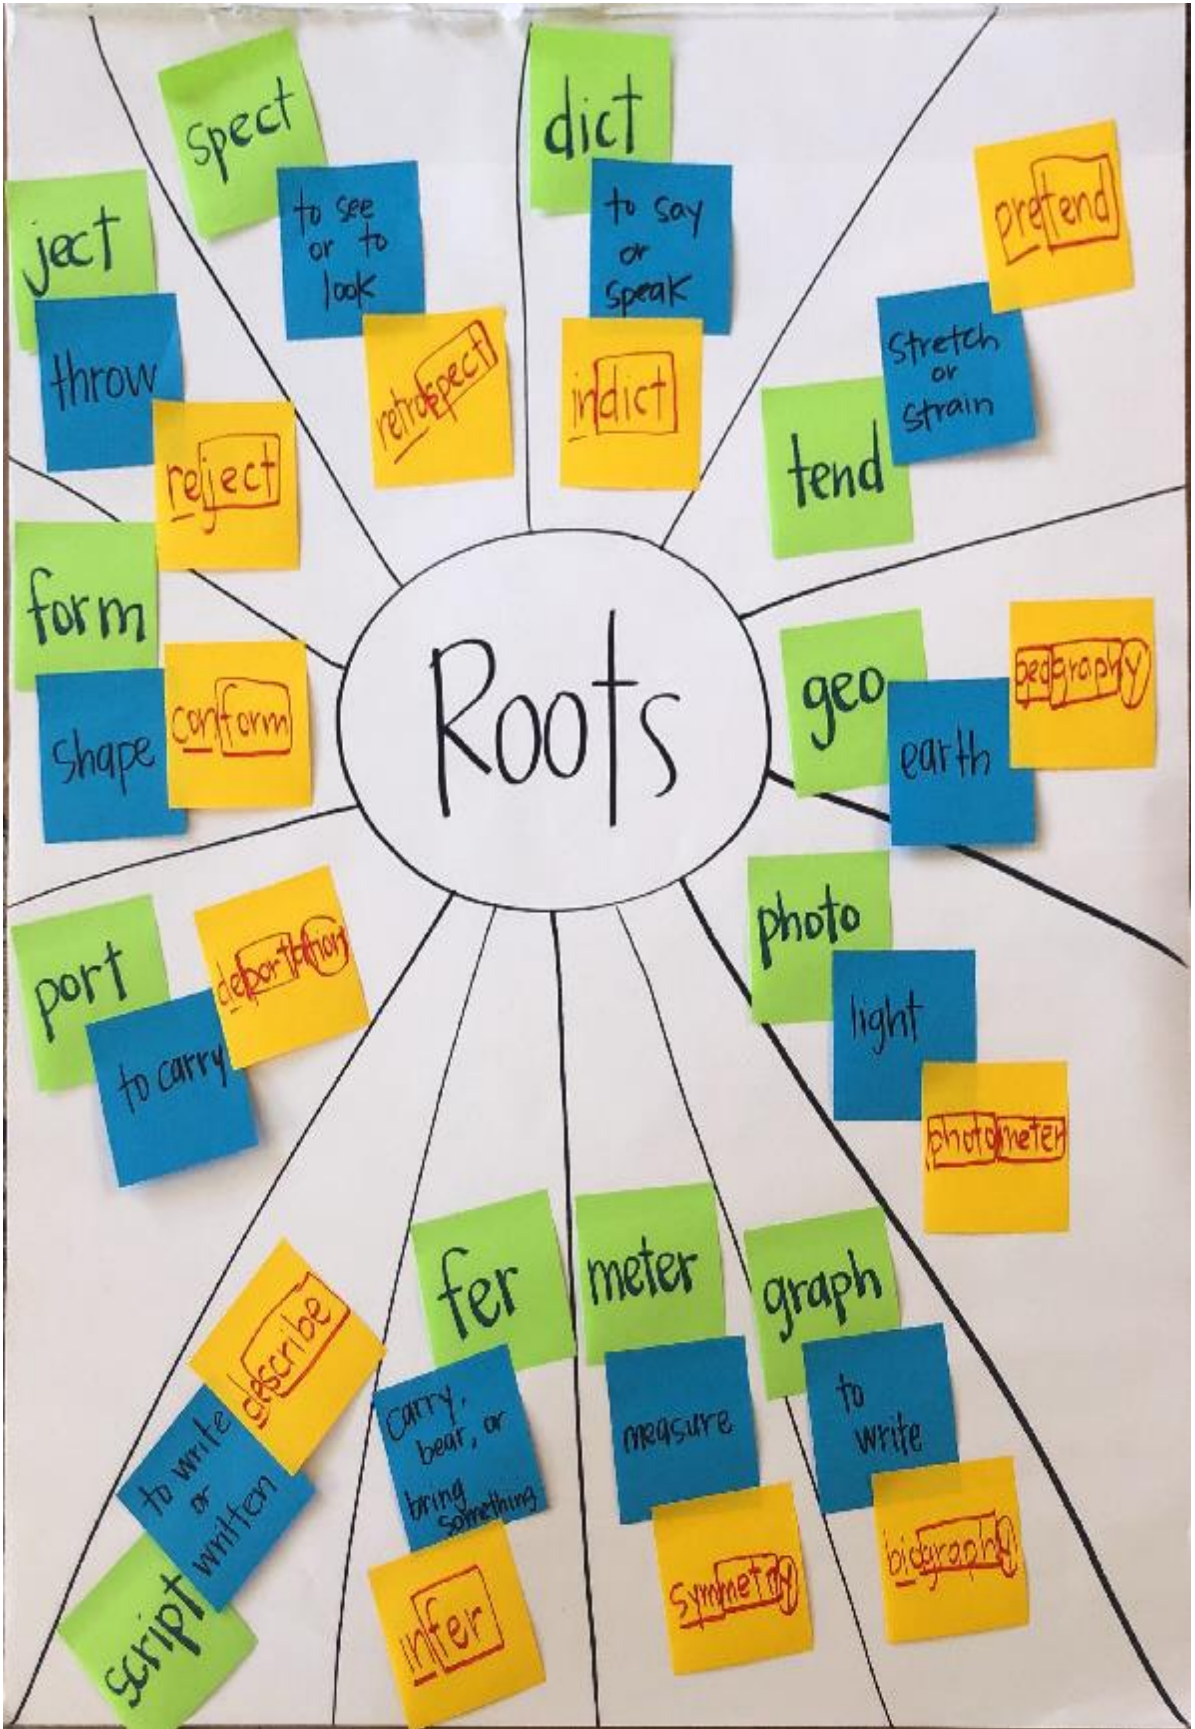 spect
to see
or to
look
retrospect
dict
to say
or
speak
indict
pretend
stretch
or
strain
tend
ject
throw
reject
form
shape
conform
Roots
geo
earth
geography
port
to carry
deportation
photo
light
photometer
describe
to write
or
written
script
fer
carry,
bear, or
bring
something
infer
meter
measure
symmetry
graph
to
write
biography